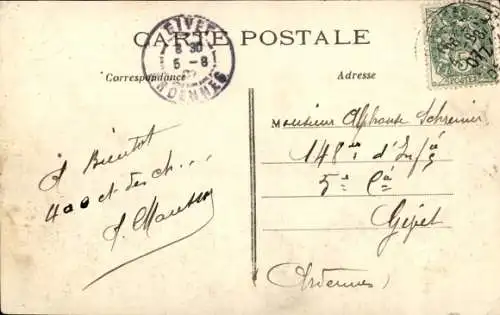 CARTE POSTALE
GIVET
8 30
5 - 8
ARDENNES
Correspondance
Adresse
A Bientôt
400 et des ch...
Monsieur Alphonse Schreiner
148e d'Infie
5e Cie
Givet
(Ardennes)